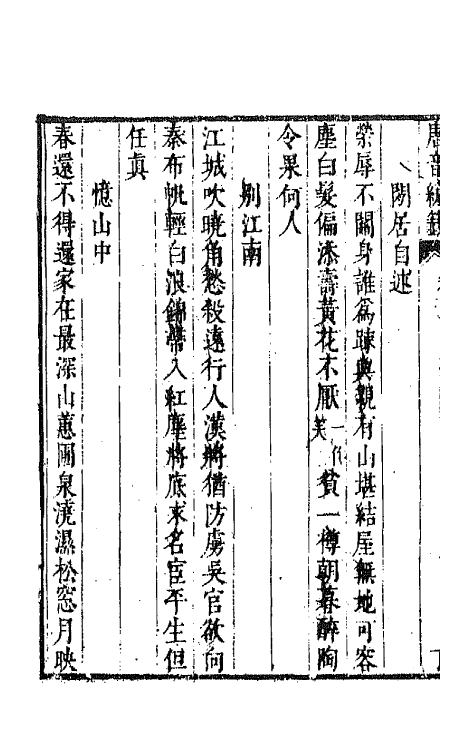 唐音統籤
閒居自述
榮辱不關身誰爲踈與親有山堪結屋無地可容
塵白髮偏添壽黃花不厭一作笑貧一樽朝暮醉陶
令果何人
別江南
江城吹曉角愁殺遠行人漢將猶防虜吳官欲向
秦布帆輕白浪錦帶入紅塵將底來名宦平生但
任真
憶山中
春還不得還家在最深山蕙圃泉澆濕松窓月映